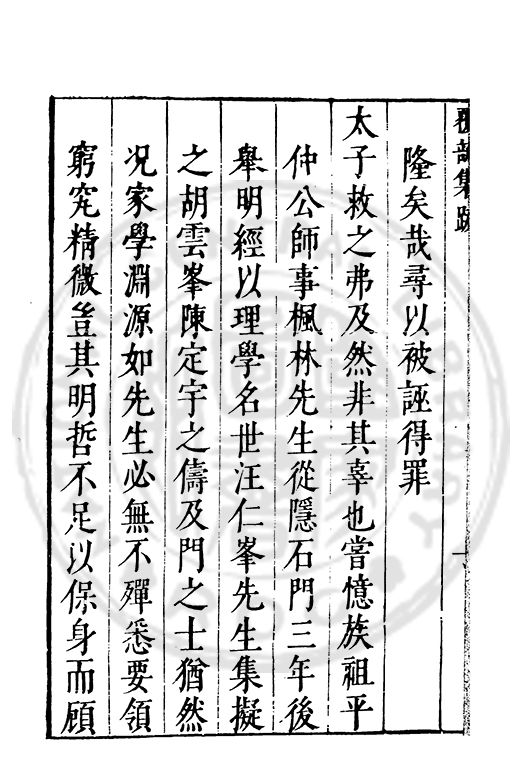 隆矣哉尋以被誣得罪
太子救之弗及然非其辜也嘗憶族祖平
仲公師事楓林先生從隱石門三年後
舉明經以理學名世汪仁峯先生集擬
之胡雲峯陳定宇之儔及門之士猶然
况家學淵源如先生必無不殫悉要領
窮究精微豈其明哲不足以保身而顧